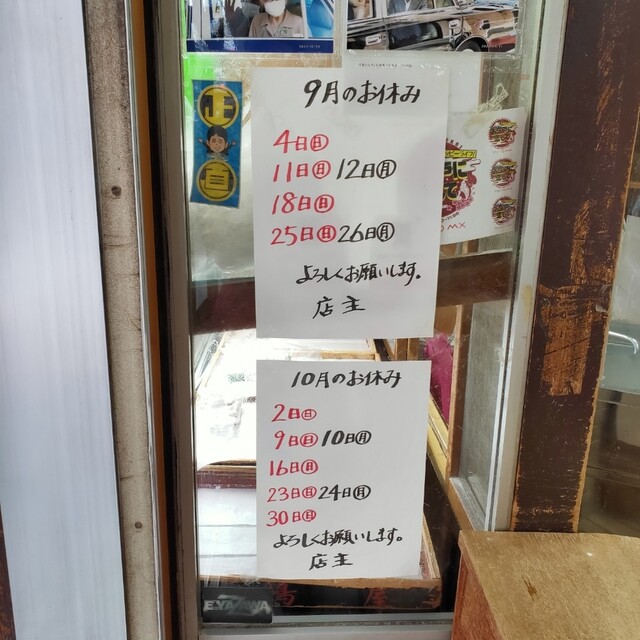 正
直
9月のお休み
4日㊐
11日㊐ 12日㊊
18日㊐
25日㊐ 26日㊊
よろしくお願いします。
店主
MX
10月のお休み
2日㊐
9日㊐ 10日㊊
16日㊐
23日㊐ 24日㊊
30日㊐
よろしくお願いします。
店主
E.YAZAWA
屋